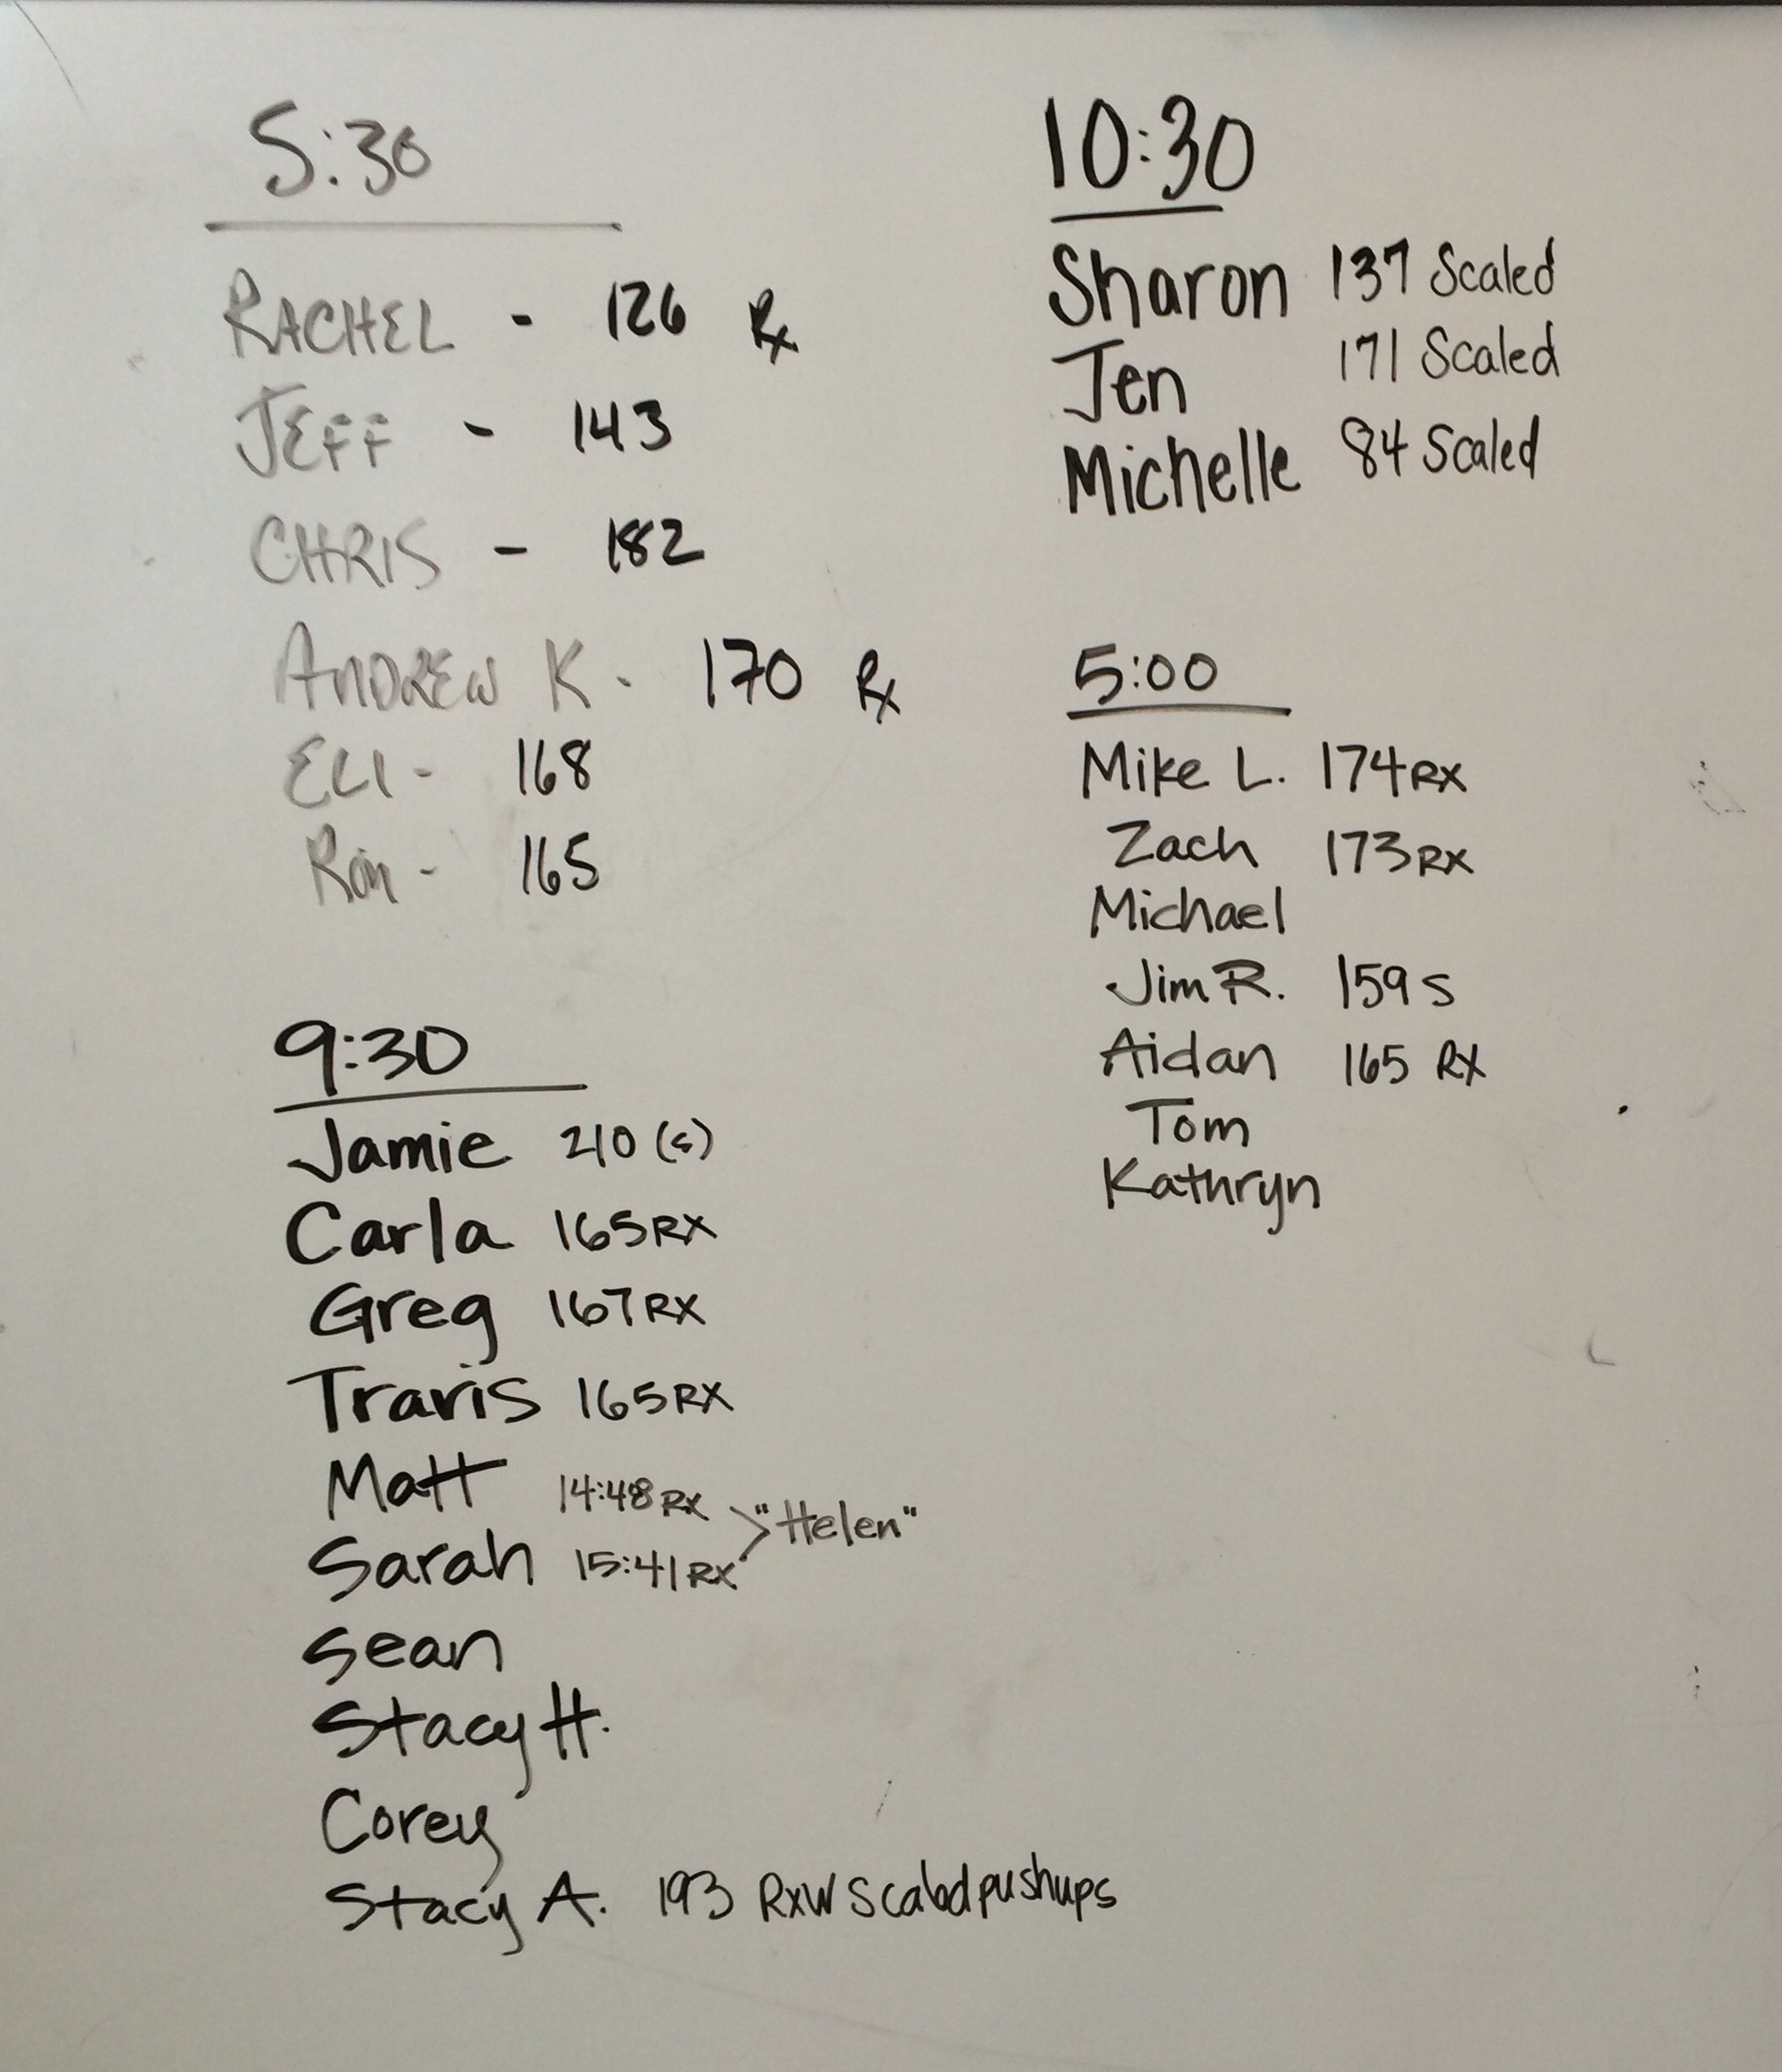 5:30
RACHEL - 126 Rx
JEFF - 143
CHRIS - 182
ANDREW K - 170 Rx
ELI - 168
Ron - 165
9:30
Jamie 210 (s)
Carla 165 RX
Greg 167 RX
Travis 165 RX
Matt 14:48 RX
Sarah 15:41 RX
> "Helen"
Sean
Stacy H.
Corey
Stacy A. 193 RxW Scaled pushups
10:30
Sharon 137 Scaled
Jen 171 Scaled
Michelle 84 Scaled
5:00
Mike L. 174 RX
Zach 173 RX
Michael
Jim R. 159 S
Aidan 165 RX
Tom
Kathryn